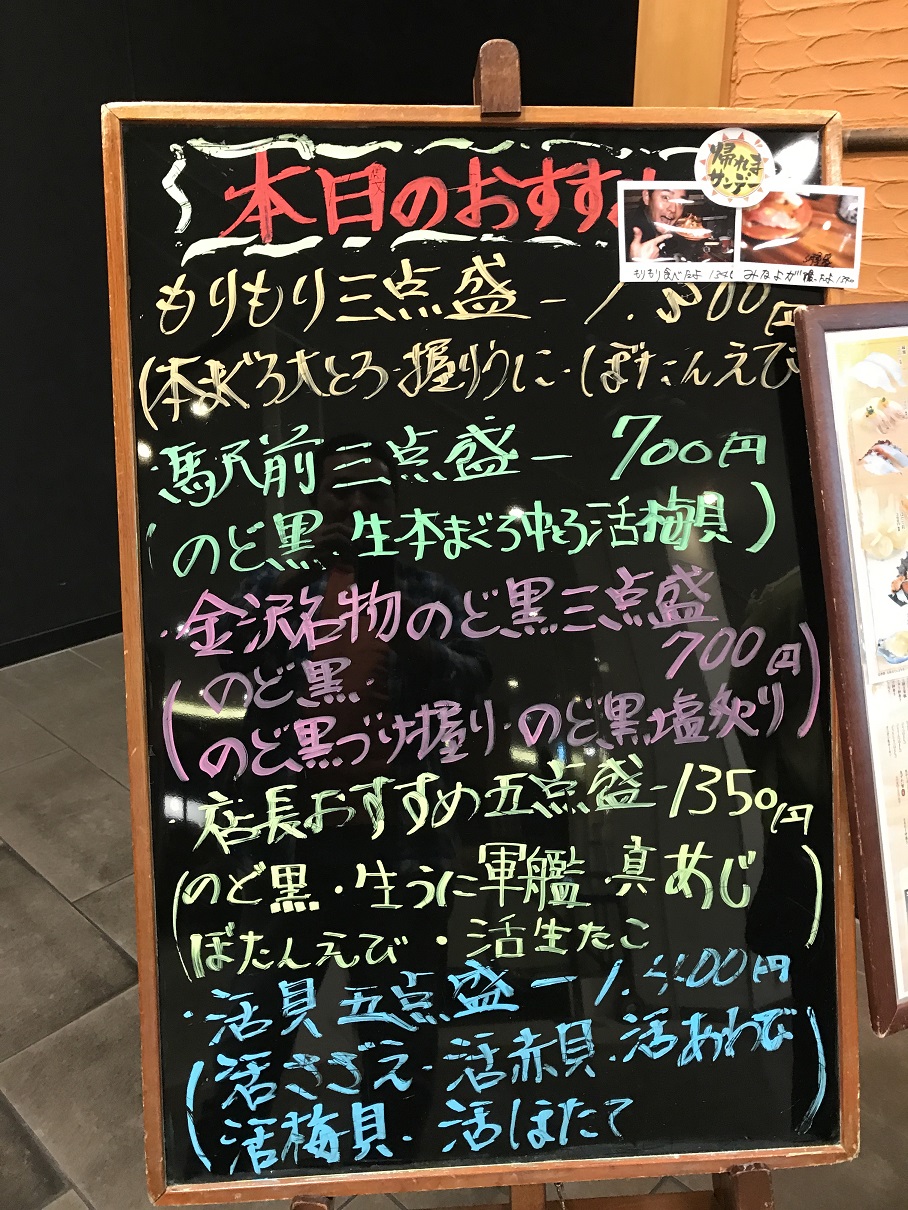 本日のおすすめ
帰れま
サンデー
もりもり食べたよ
みなよが
もりもり三点盛ー1.300円
(本まぐろ大とろ・握りうに・ぼたんえび
・駅前三点盛ー700円
(のど黒・生本まぐろ中とろ活梅貝)
・金沢名物のど黒三点盛
700円
(のど黒・
のど黒づけ握り・のど黒塩炙り)
・店長おすすめ五点盛ー1350円
(のど黒・生うに軍艦・真あじ
ぼたんえび・活生たこ)
・活貝五点盛ー
円
(活さざえ・活赤貝・活あわび
活梅貝・活ほたて)